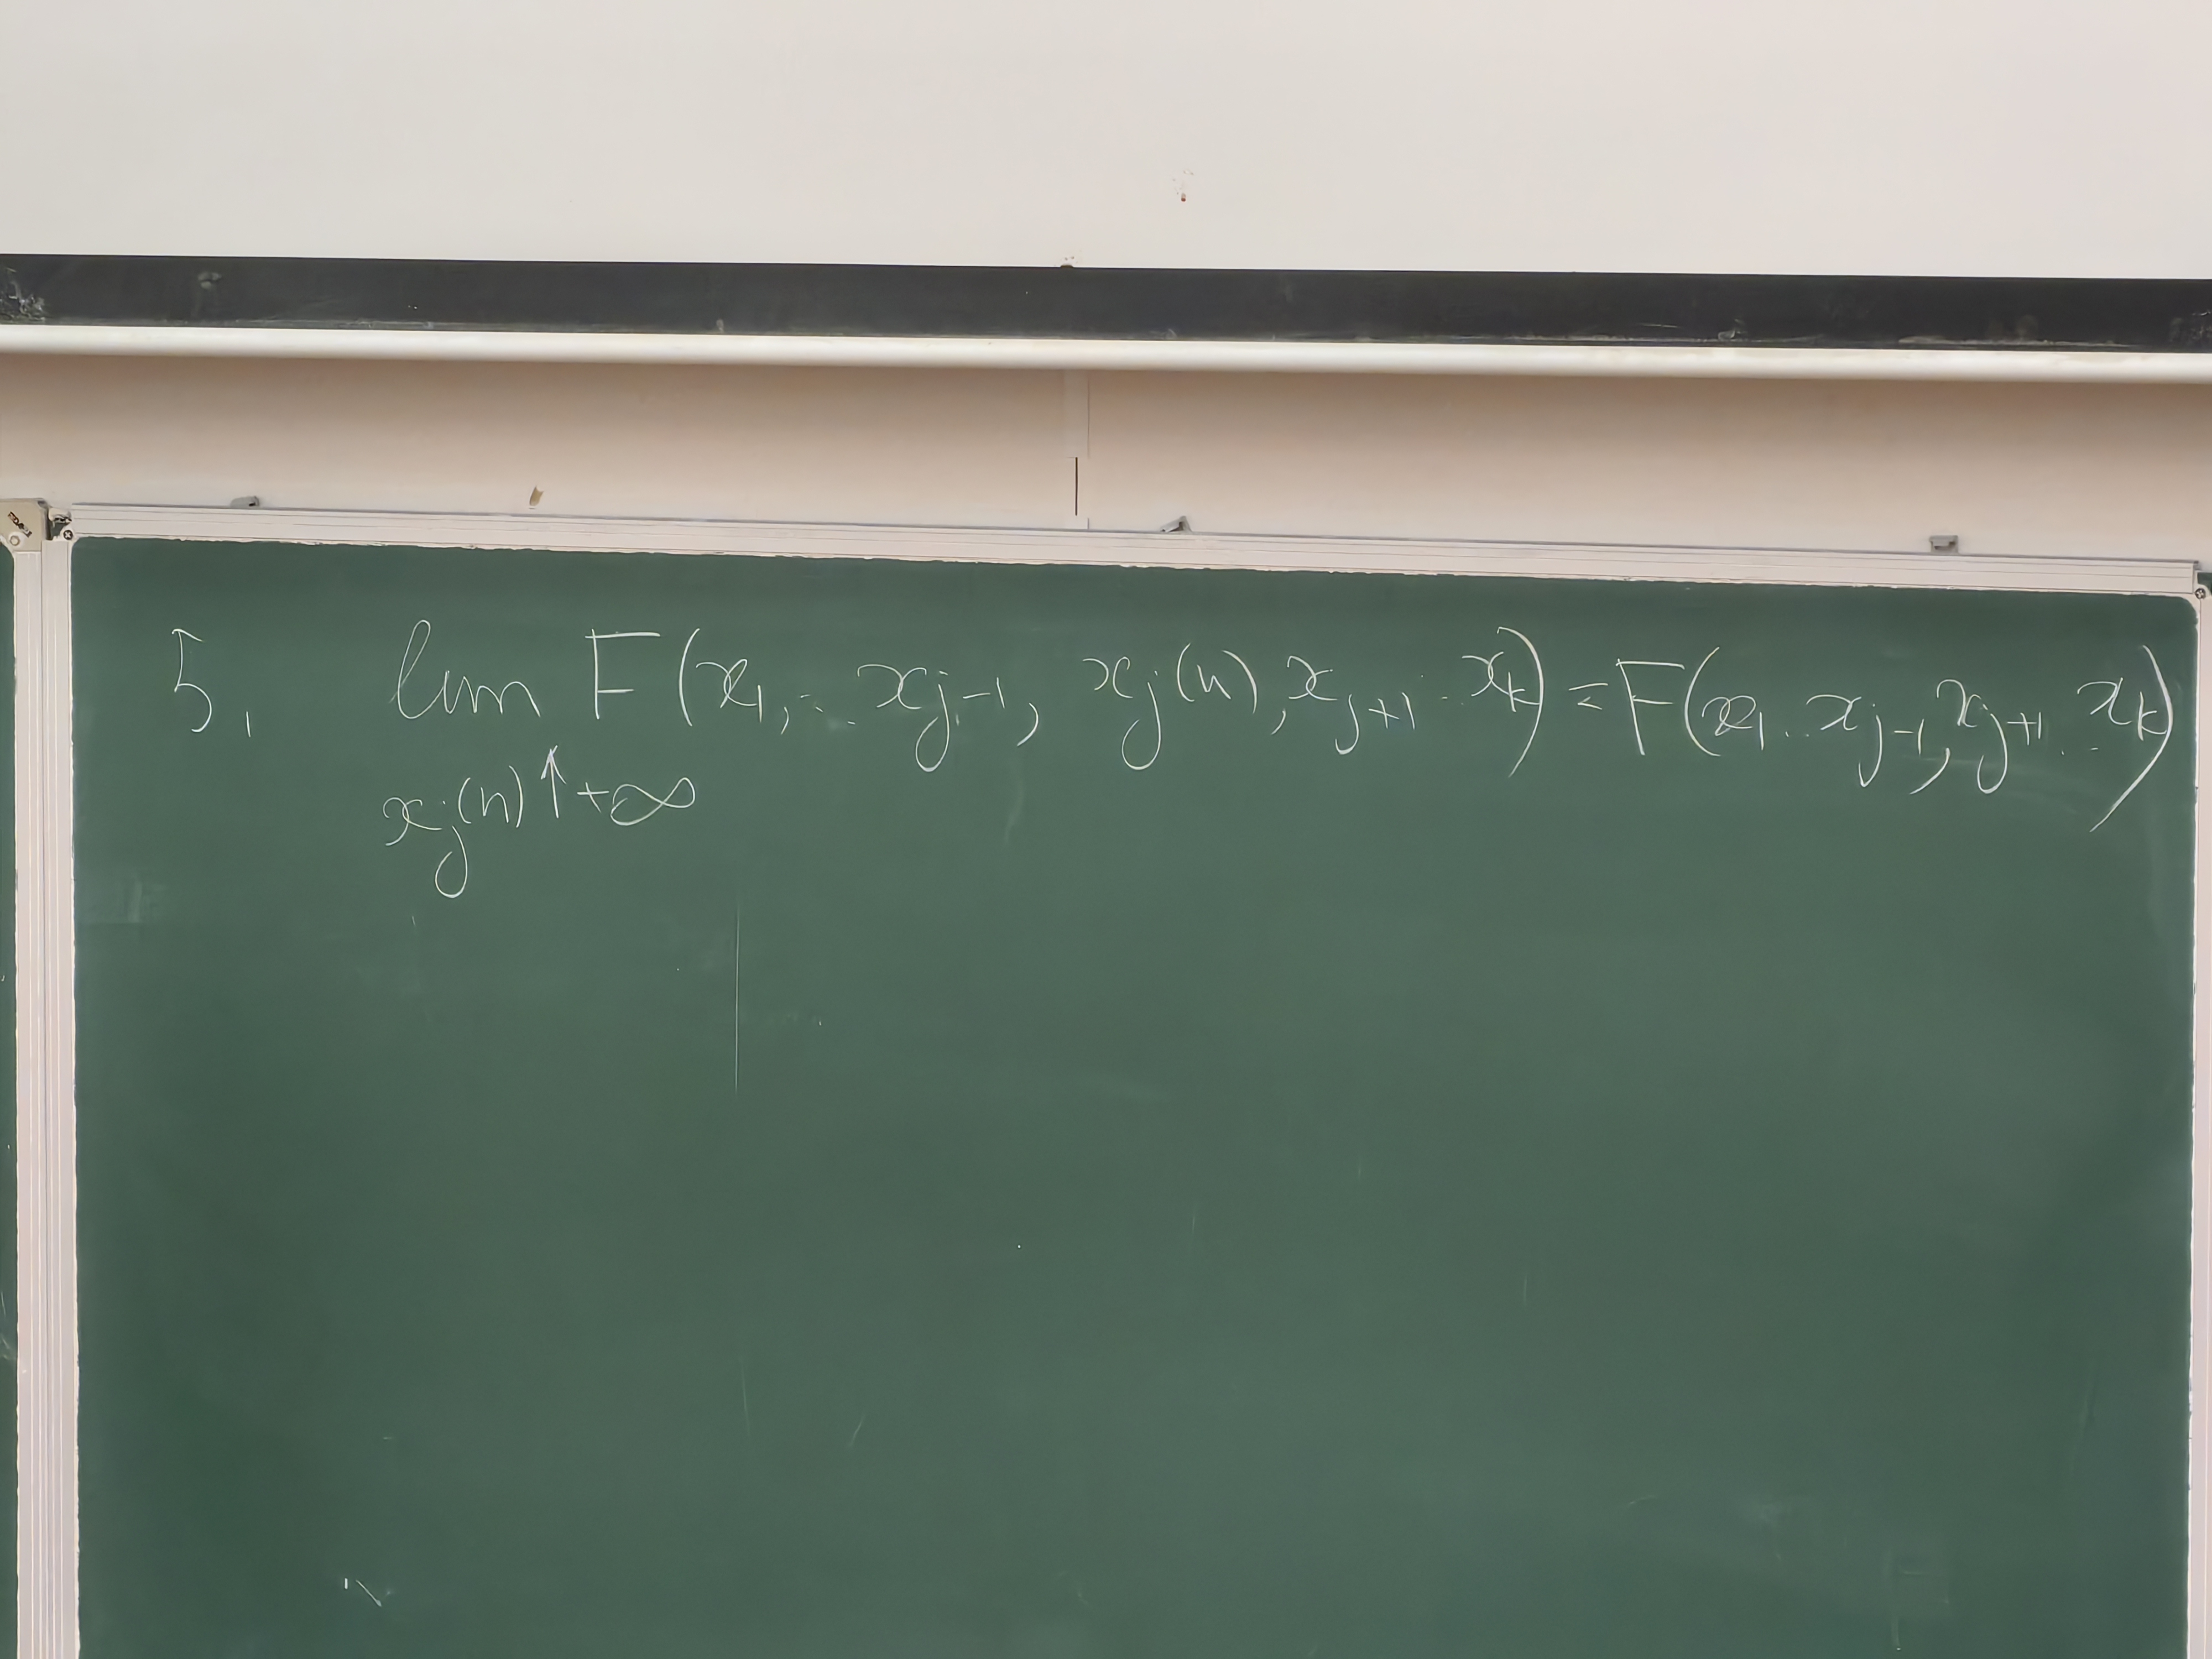 5. lim F(x₁, ... xⱼ₋₁, xⱼ(n), xⱼ₊₁ ... xₖ) = F(x₁ ... xⱼ₋₁, xⱼ₊₁ ... xₖ)
xⱼ(n)↑+∞